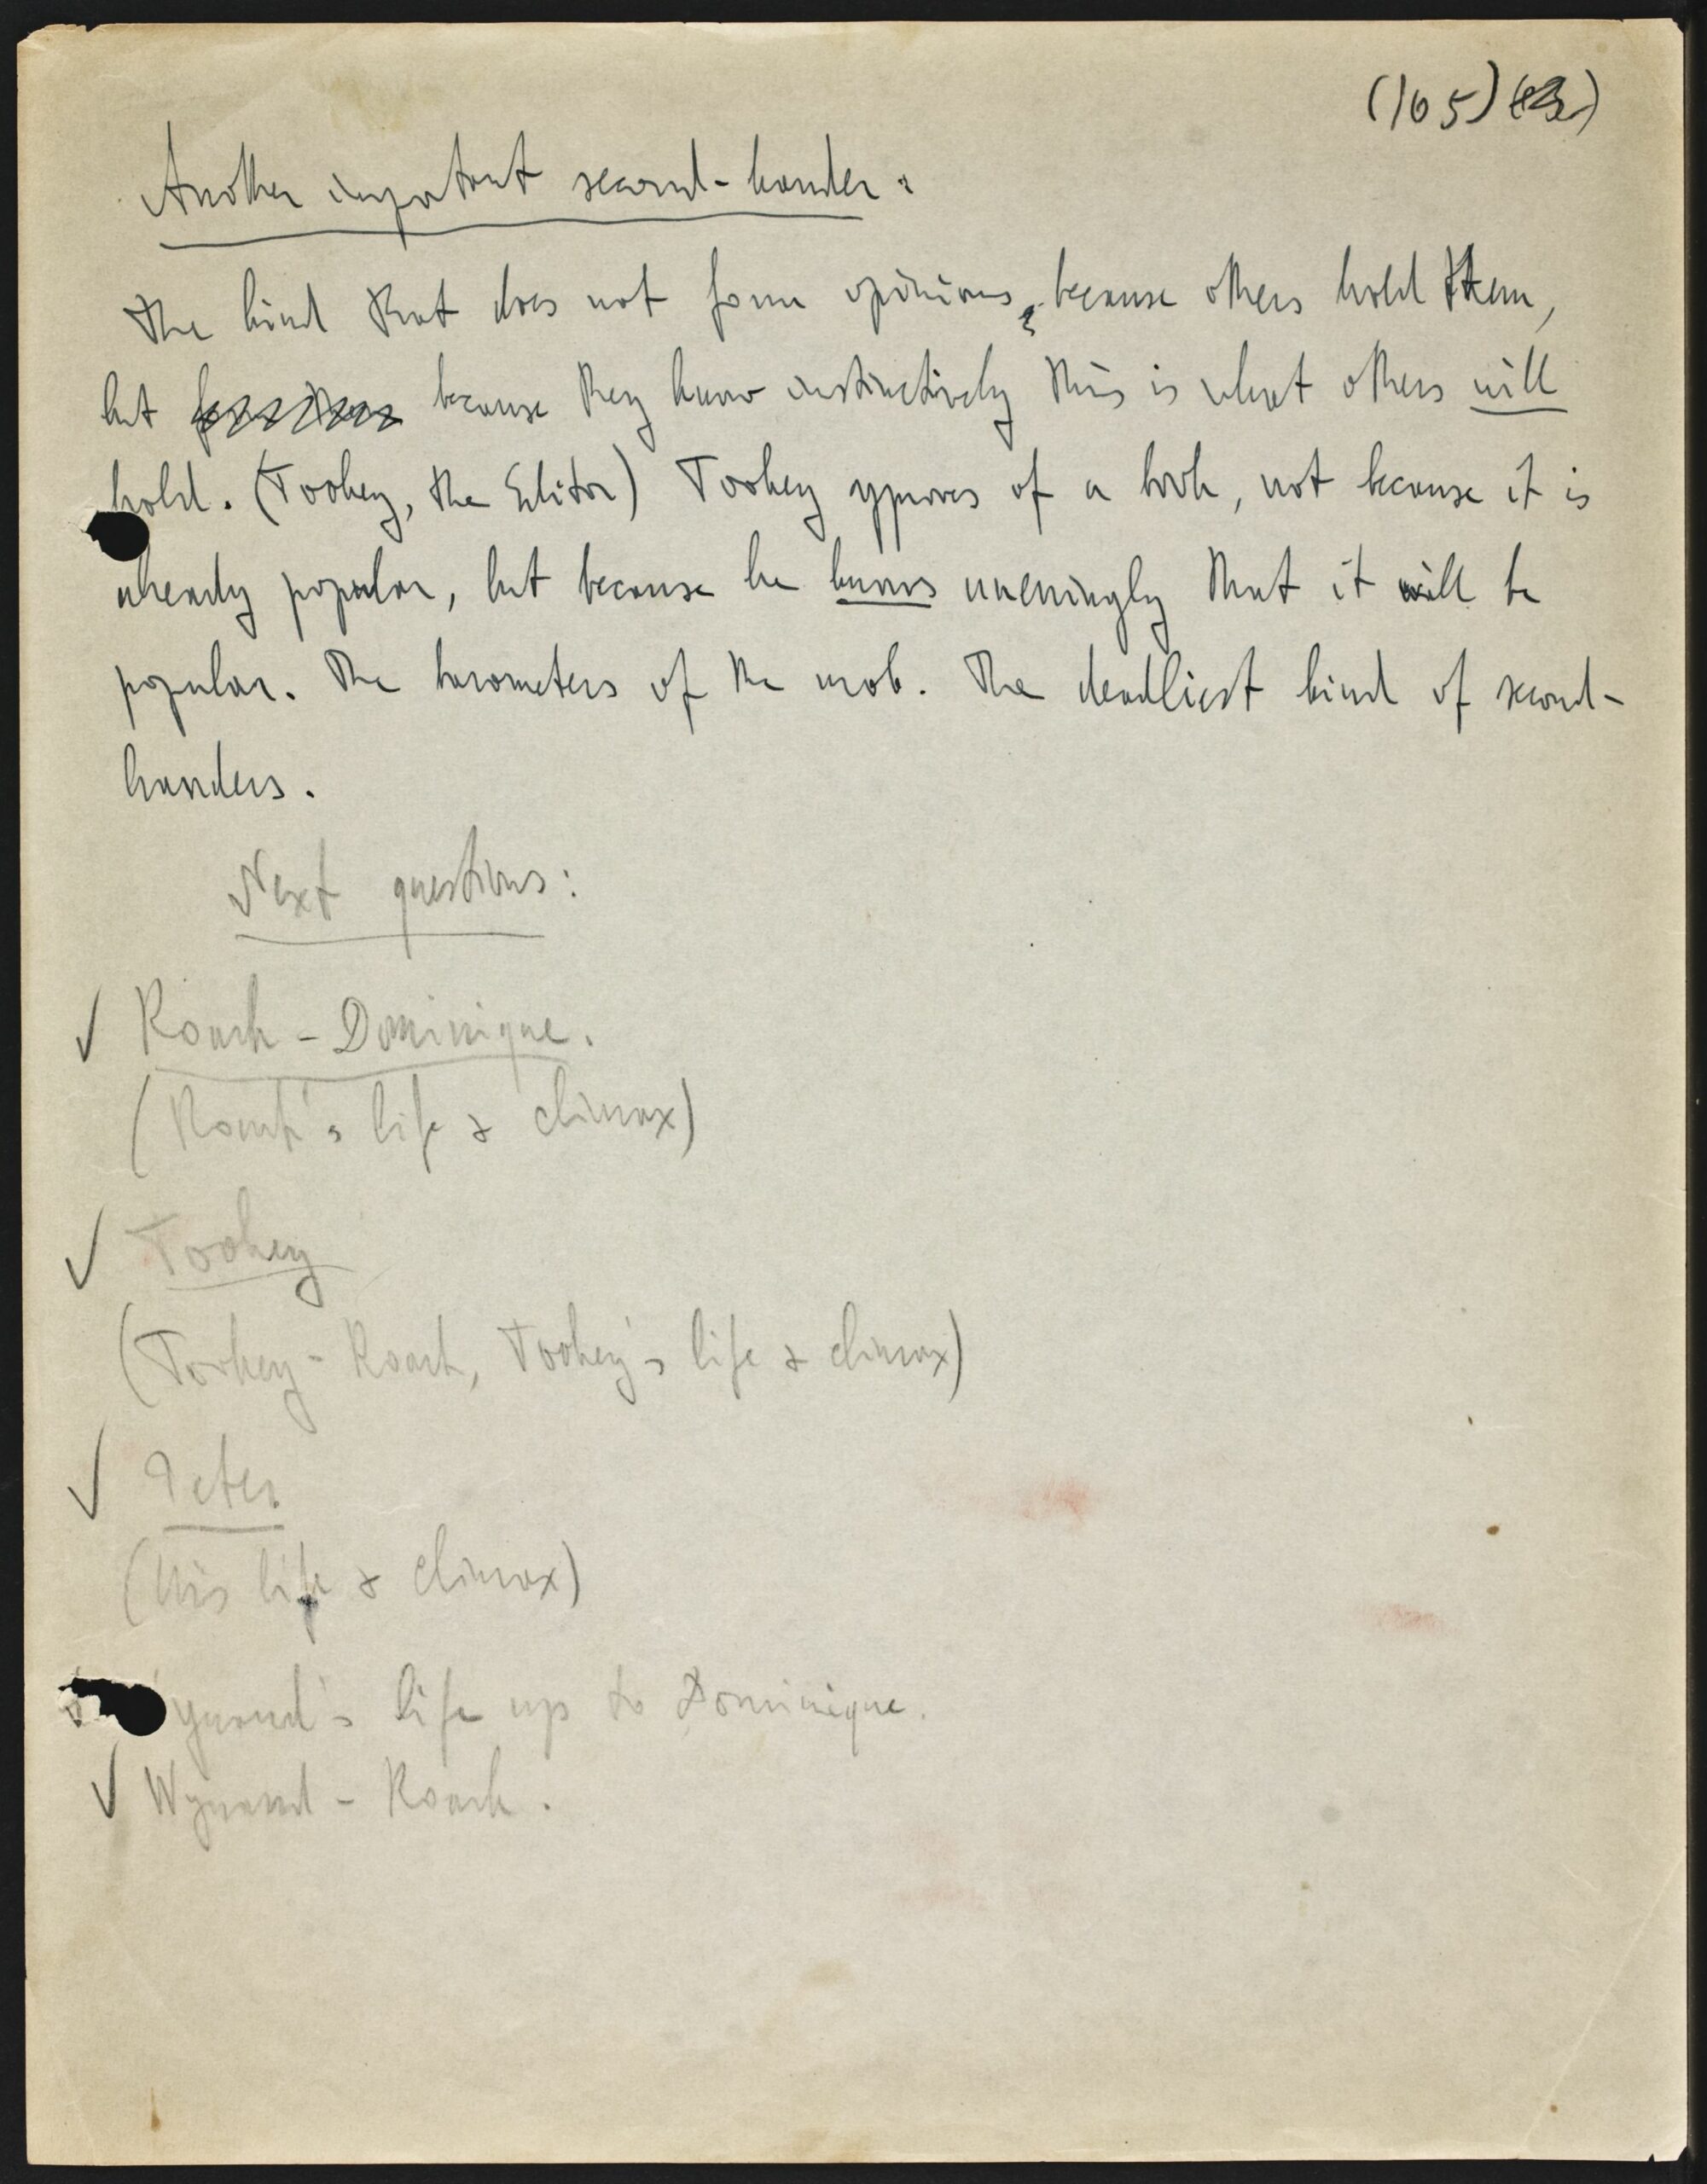 (105)
Another important second-hander:
The kind that does not form opinions, because others hold them,
but because they know instinctively this is what others will
hold. (Toohey, the Editor) Toohey approves of a book, not because it is
already popular, but because he knows unerringly that it will be
popular. The barometers of the mob. The deadliest kind of second-
handers.
Next questions:
✓ Roark - Dominique.
(Roark's life & climax)
✓ Toohey
(Toohey - Roark, Toohey's life & climax)
✓ Peter
(his life & climax)
ynand's life up to Dominique.
✓ Wynand - Roark.